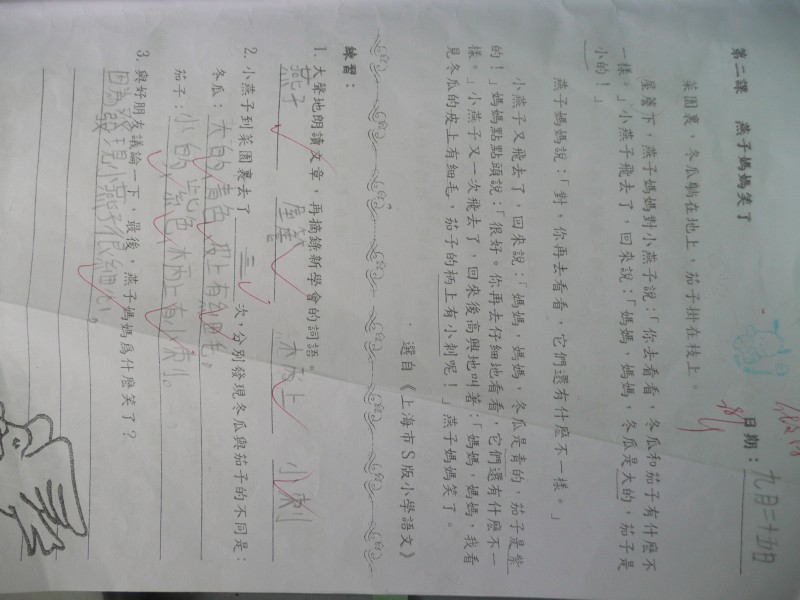 日期：九月二十五日
第二課　燕子媽媽笑了
菜園裏，冬瓜躺在地上，茄子掛在枝上。
屋簷下，燕子媽媽對小燕子說：「你去看看，冬瓜和茄子有什麼不
一樣。」小燕子飛去了，回來說：「媽媽，媽媽，冬瓜是大的，茄子是
小的！」
燕子媽媽說：「對，你再去看看，它們還有什麼不一樣。」
小燕子又飛去了，回來說：「媽媽，媽媽，冬瓜是青的，茄子是紫
的！」媽媽點點頭說：「很好。你再去仔細地看看，它們還有什麼不一
樣。」小燕子又一次飛去了，回來後高興地叫著：「媽媽，媽媽，我看
見冬瓜的皮上有細毛，茄子的柄上有小刺呢！」燕子媽媽笑了。
選自《上海市S版小學語文》
練習：
1. 大聲地朗讀文章，再摘錄新學會的詞語。
燕子　屋簷　柄上　小刺
2. 小燕子到菜園裏去了 三 次，分別發現冬瓜與茄子的不同是：
冬瓜：大的 青色 皮上有細毛，
茄子：小的，紫色，柄上有小刺。
3. 與好朋友議論一下，最後，燕子媽媽爲什麼笑了？
因為發現小燕子很細心。